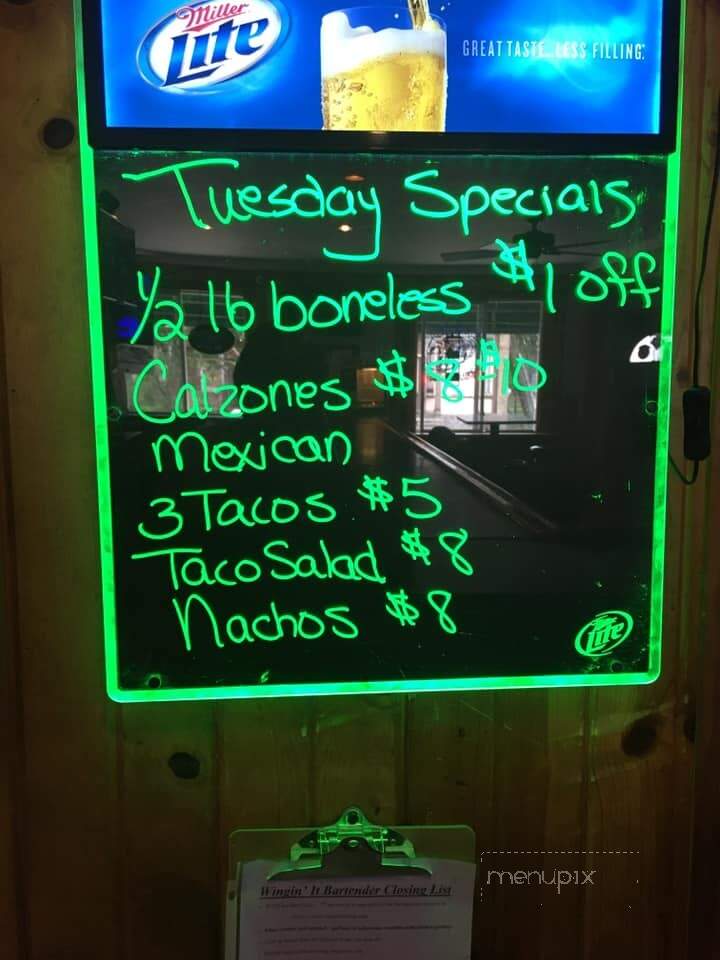 Miller
Lite
GREAT TASTE. LESS FILLING.
Tuesday Specials
1/2 lb boneless $1 off
Calzones $8 $10
Mexican
3 Tacos $5
Taco Salad $8
Nachos $8
Lite
Wingin' It Bartender Closing List
menupix